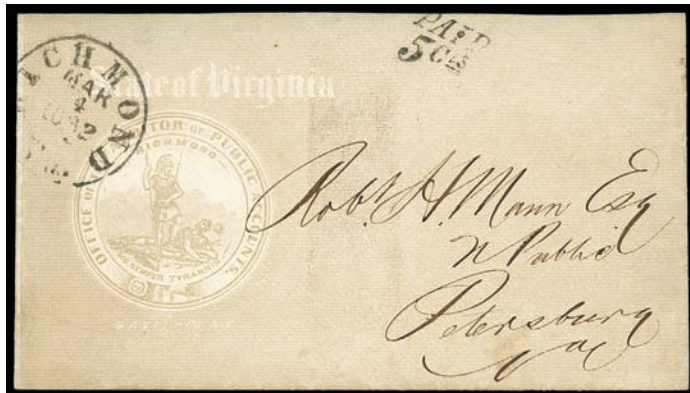 PAID
5 cts
RICHMOND
MAR
4
1862
State of Virginia
OFFICE OF AUDITOR OF PUBLIC ACCOUNTS.
RICHMOND.
SIC SEMPER TYRANNIS
Robt. H. Mann Esq
N Public
Petersburg
Va